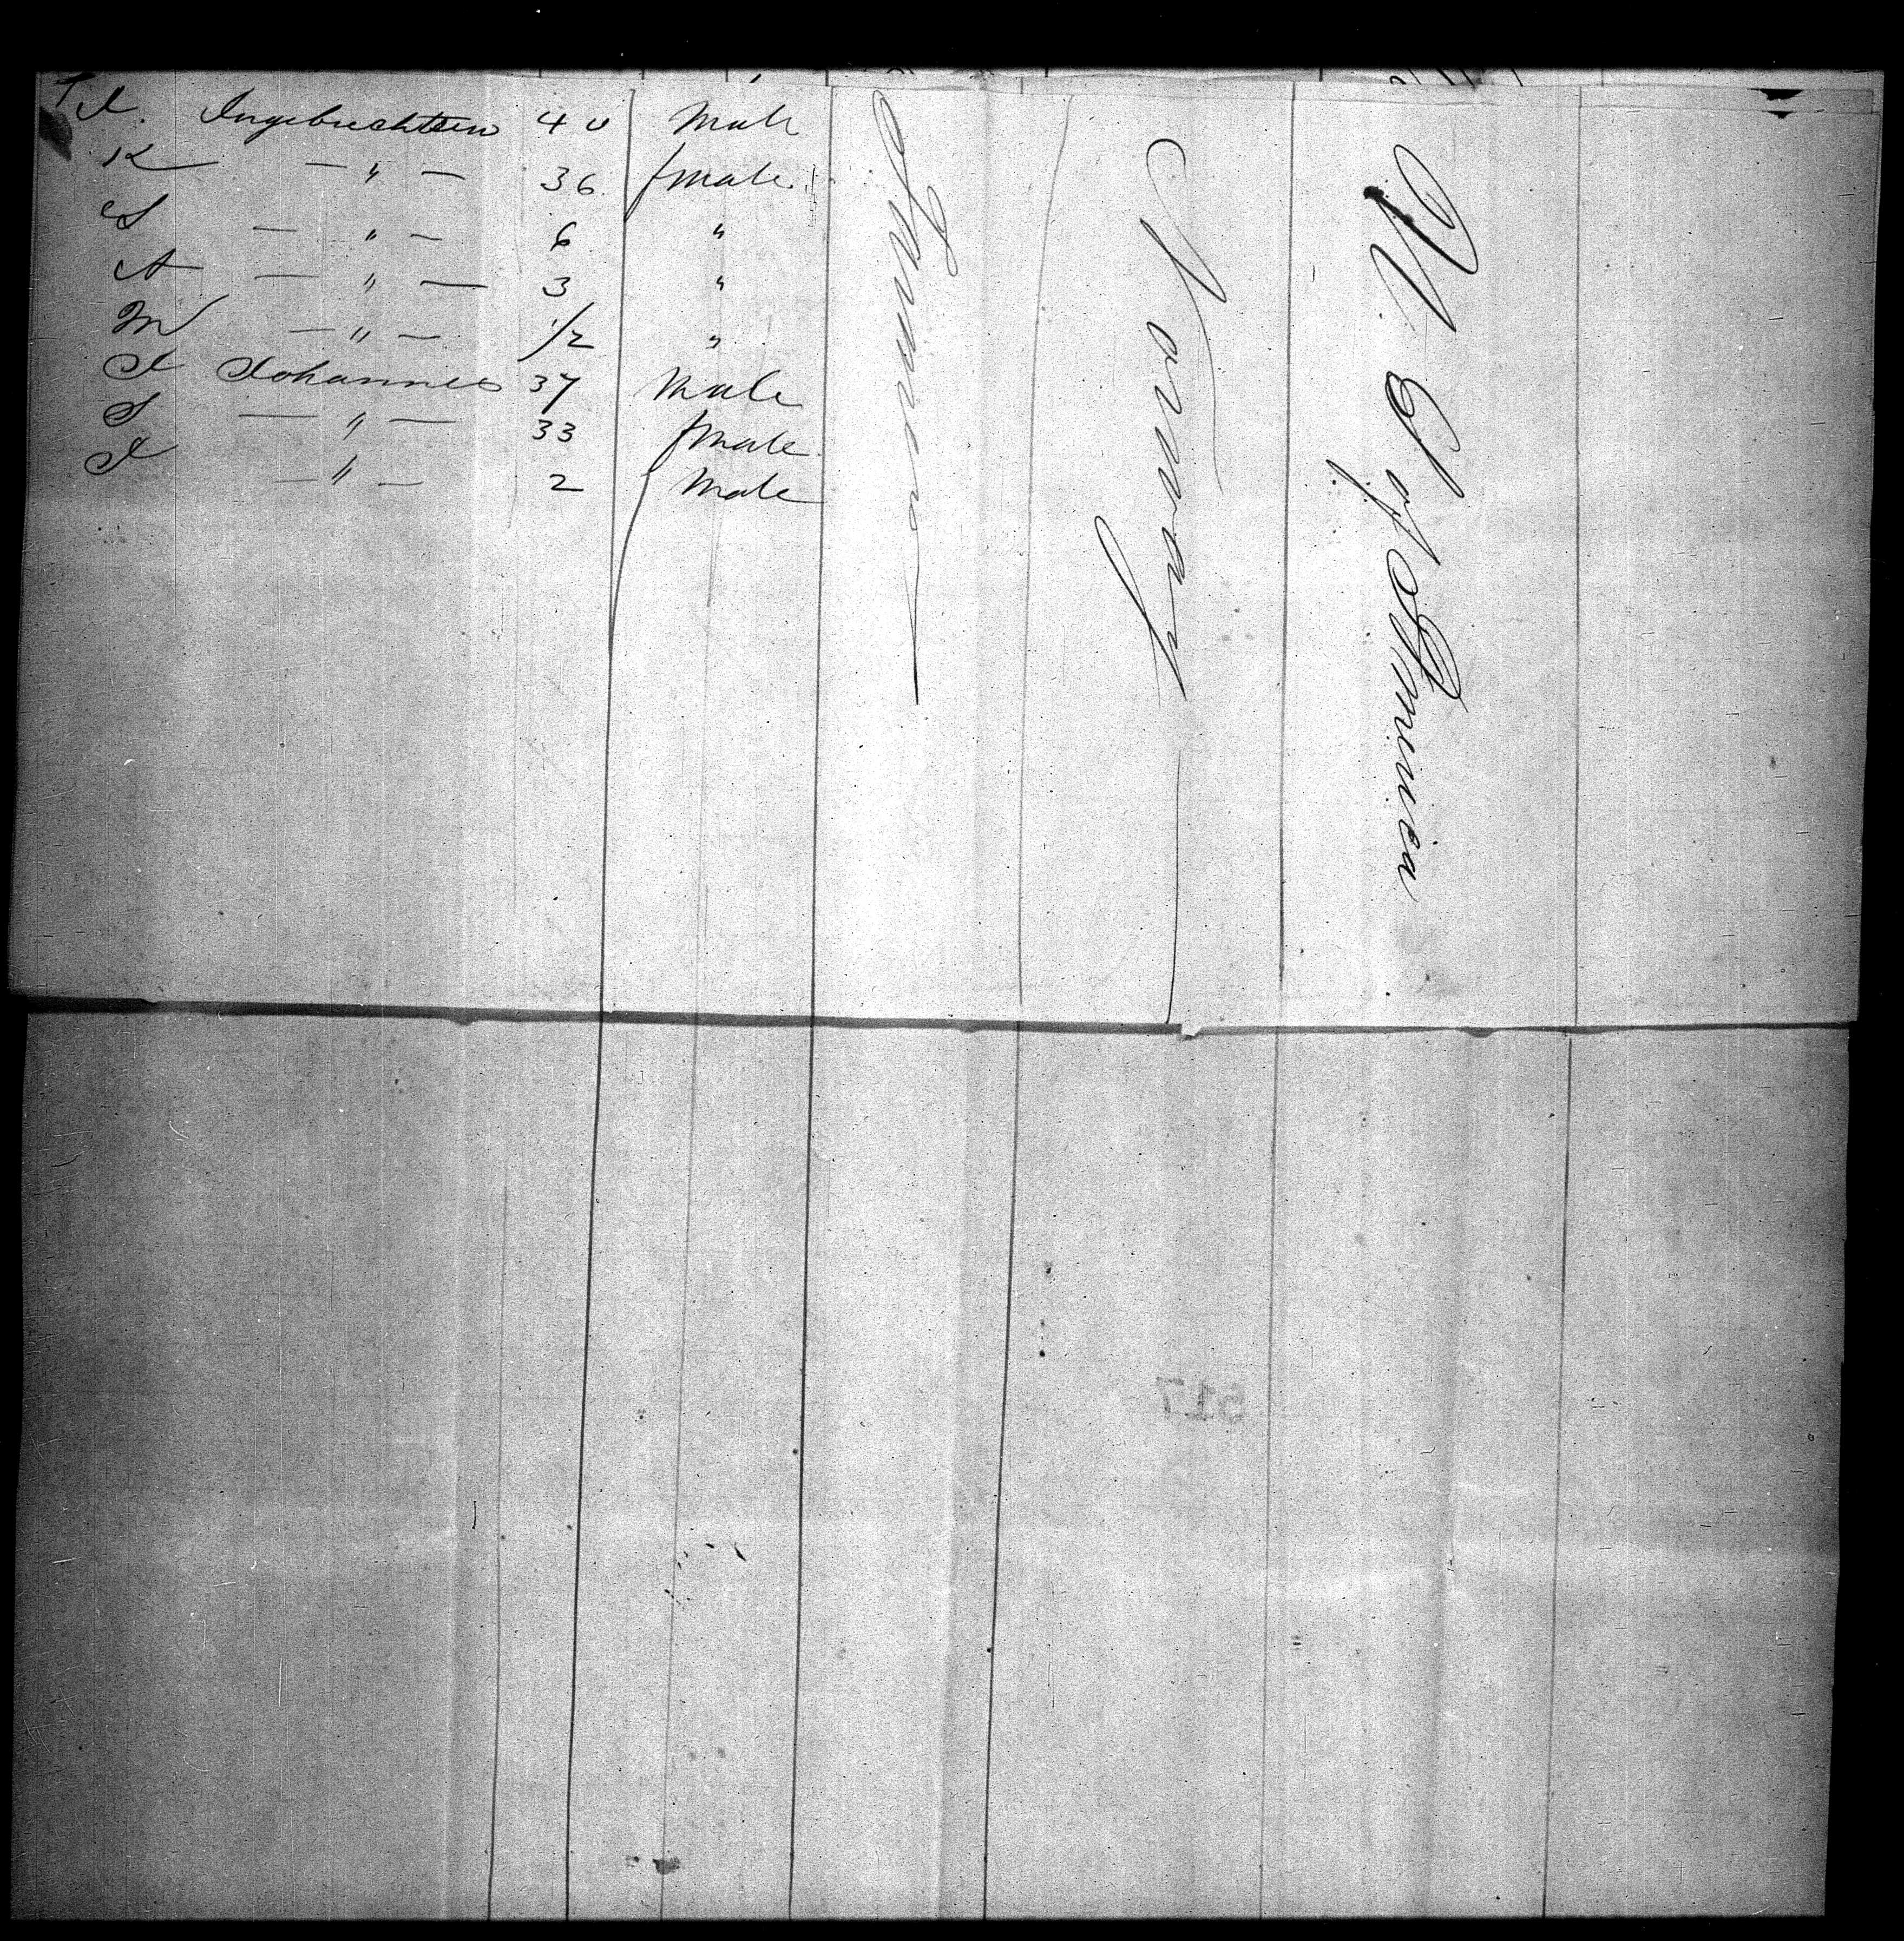 I. Ingebrechtsen 40 Male
K — " — 36 female
S — " — 6 "
A — " — 3 "
M — " — 1/2 "
I Johannes 37 Male
S — " — 33 female
I — " — 2 Male
Farmer
Norway
U. S of America
517